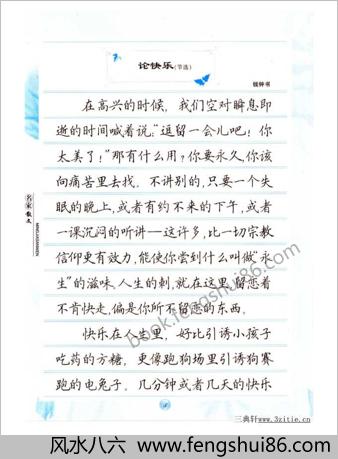 论快乐(节选)
钱钟书
在高兴的时候，我们空对瞬息即
逝的时间喊着说:“逗留一会儿吧！你
太美了！”那有什么用？你要永久，你该
向痛苦里去找。不讲别的，只要一个失
眠的晚上，或者有约不来的下午，或者
一课沉闷的听讲——这许多，比一切宗教
信仰更有效力，能使你尝到什么叫做“永
生”的滋味。人生的刺，就在这里，留恋着
不肯快走，偏是你所不留恋的东西。
快乐在人生里，好比引诱小孩子
吃药的方糖，更像跑狗场里引诱狗赛
跑的电兔子。几分钟或者几天的快乐
名家散文
book.fengshui86.com
三典轩www.3zitie.cn
风水八六 www.fengshui86.com